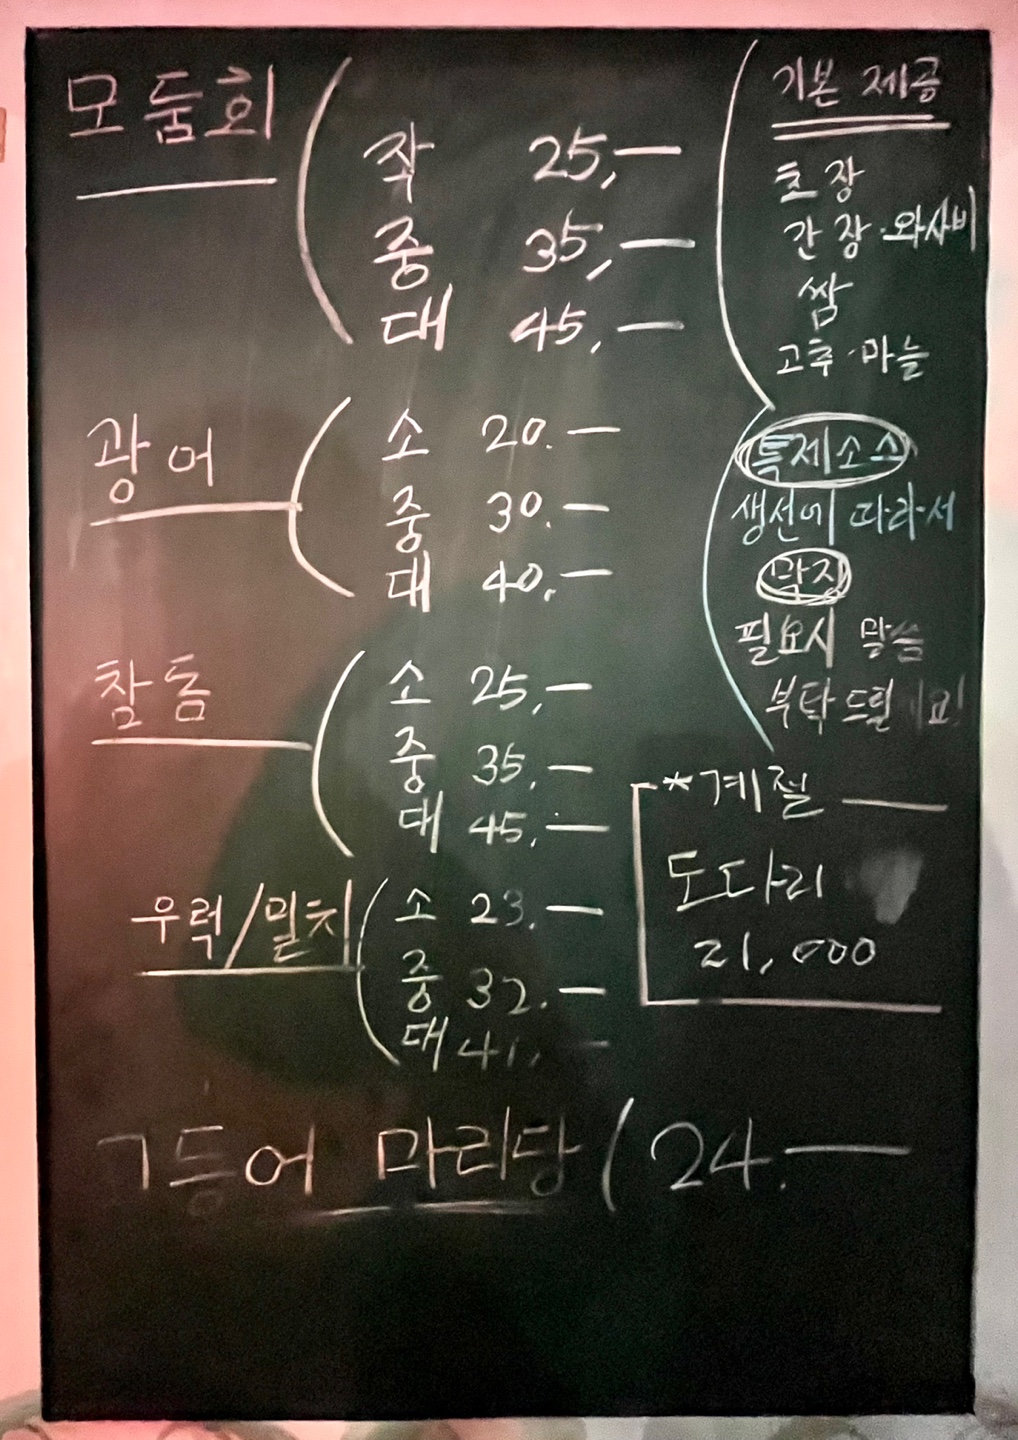 모둠회
작 25,—
중 35,—
대 45,—
광어
소 20.—
중 30.—
대 40.—
참돔
소 25,—
중 35.—
대 45,—
우럭/밀치
소 23.—
중 32.—
대 41,—
그등어 마리당 ( 24.—
기본 제공
초장
간장·와사비
쌈
고추·마늘
특제소스
생선에 따라서
막장
필요시 말씀
부탁드릴 요!
*계절
도다리
21,000